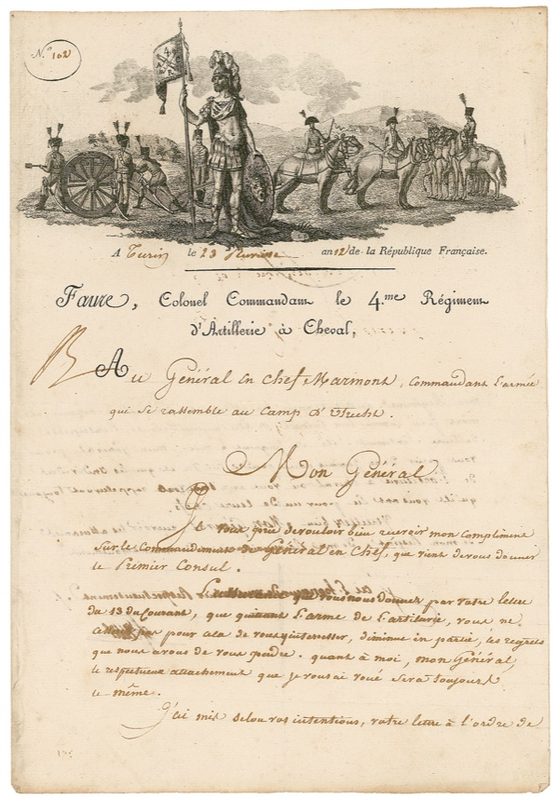 N.º 102
A Turin le 23 Ventose an 12 de la République Française.
Faure, Colonel Commandant le 4.me Régiment
d'Artillerie à Cheval,
Au Général en chef Marmont, commandant l'armée
qui se rassemble au Camp d'Utrecht.
Mon Général
Je vous prie de vouloir bien recevoir mon compliment
sur le Commandement de Général en Chef, que vient de vous donner
le Premier Consul.
que vous nous donnez par votre lettre
du 13 du Courant, que quittant l'arme de l'artillerie, vous ne
pas pour cela de vous y interresser, diminue en partie, les regrets
que nous avons de vous perdre. quant à moi, mon Général,
le respectueux attachement que je vous ai voué sera toujours
le même.
J'ai mis selon vos intentions, votre lettre à l'ordre de